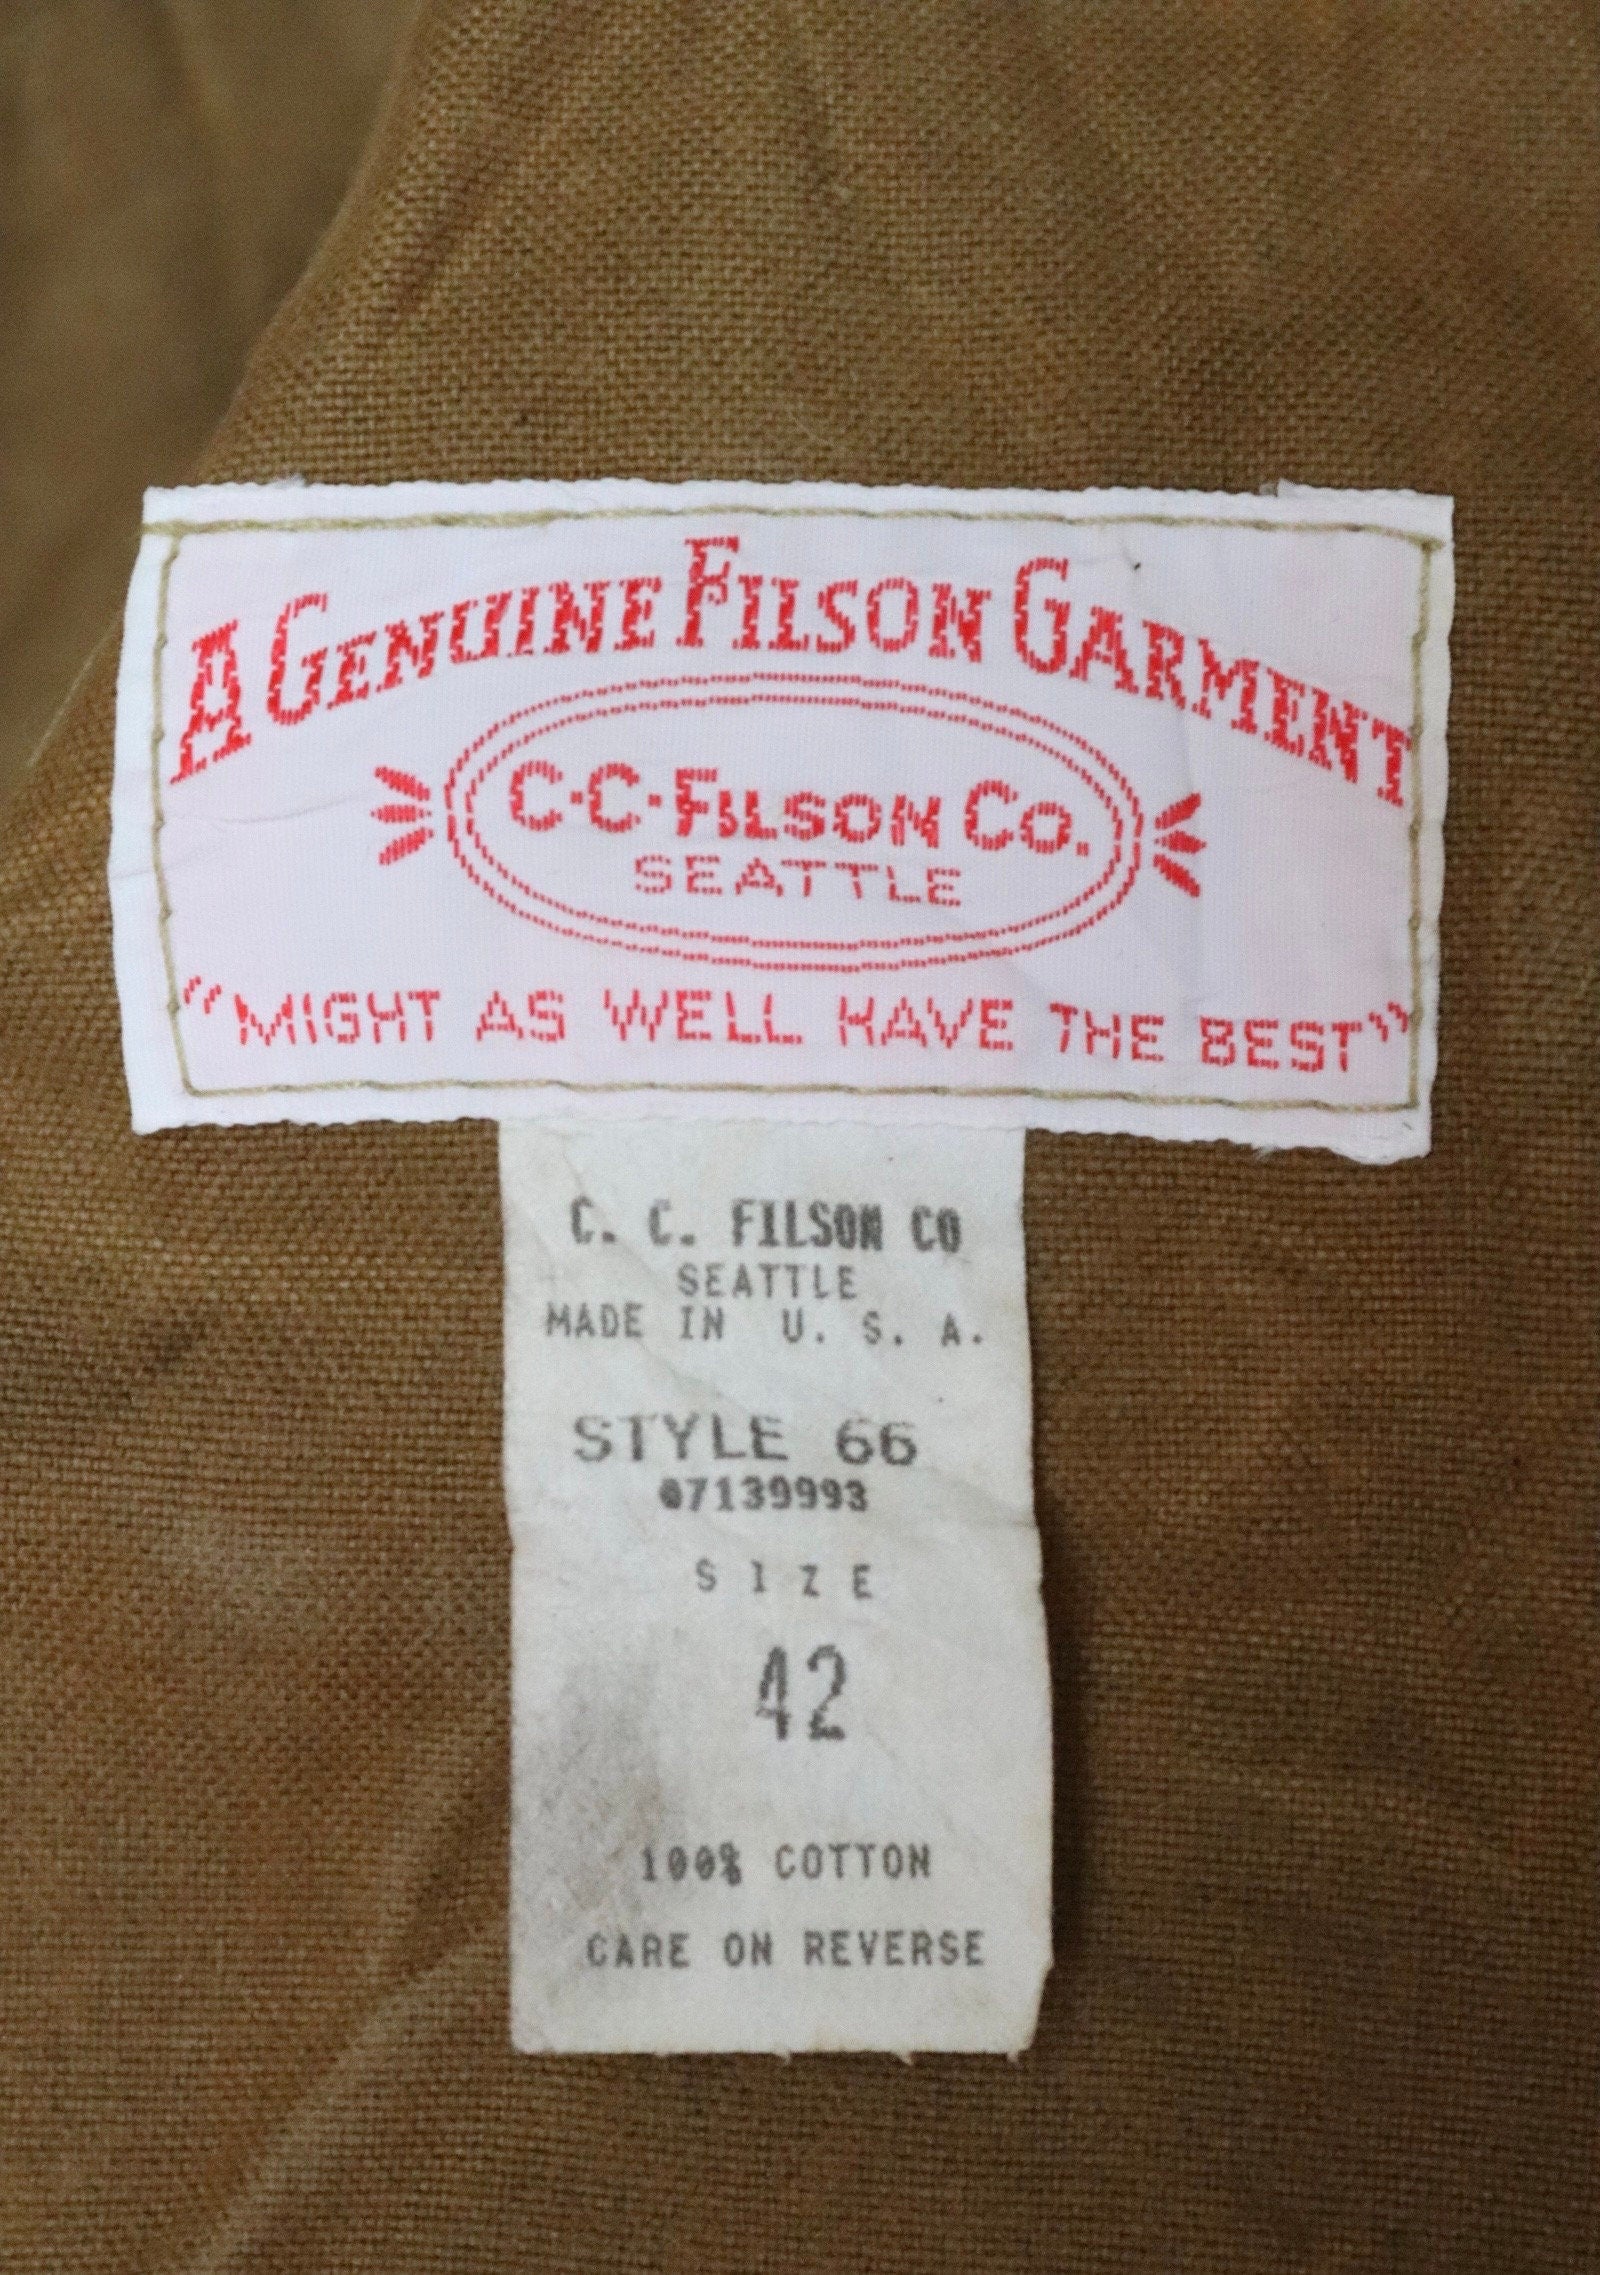 A GENUINE FILSON GARMENT
C·C·FILSON CO.
SEATTLE
"MIGHT AS WELL HAVE THE BEST"
C. C. FILSON CO
SEATTLE
MADE IN U. S. A.
STYLE 66
07139993
SIZE
42
100% COTTON
CARE ON REVERSE